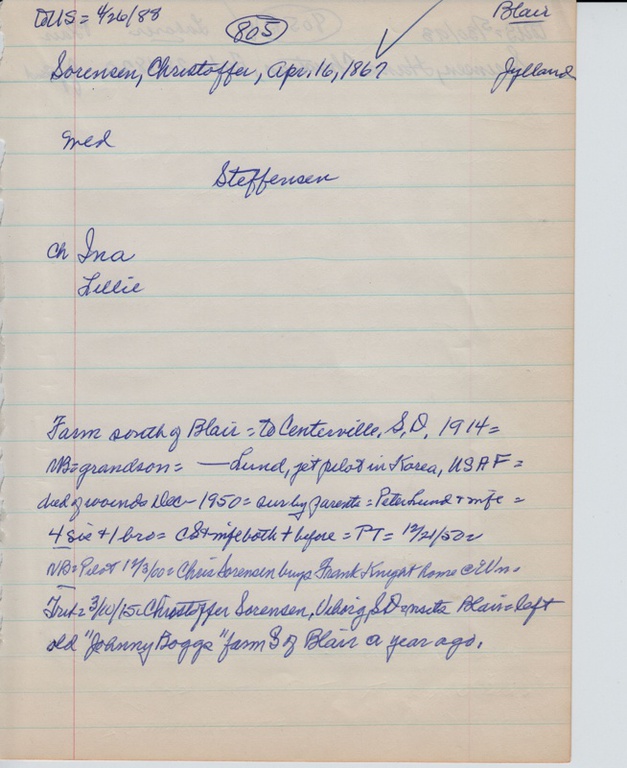 toUS = 4/26/88
805
Blair
Sorensen, Christoffer, Apr. 16, 1867
Jylland
med
Steffensen
ch Ina
Lillie
Farm south of Blair = to Centerville, S.D. 1914 =
NB = grandson = — Lund, jet pilot in Korea, USAF =
died of wounds Dec - 1950 = sur by parents = Peter Lund + wife =
4 sis + 1 bro = CS + wife both + before = PT = 12/21/50 =
NB = Pilot 12/3/00 = Chris Sorensen buys Frank Knight home
Trib = 3/10/15 = Christoffer Sorensen, Viborg, SD = visits Blair = left
old "Johnny Boggs" farm S of Blair a year ago.